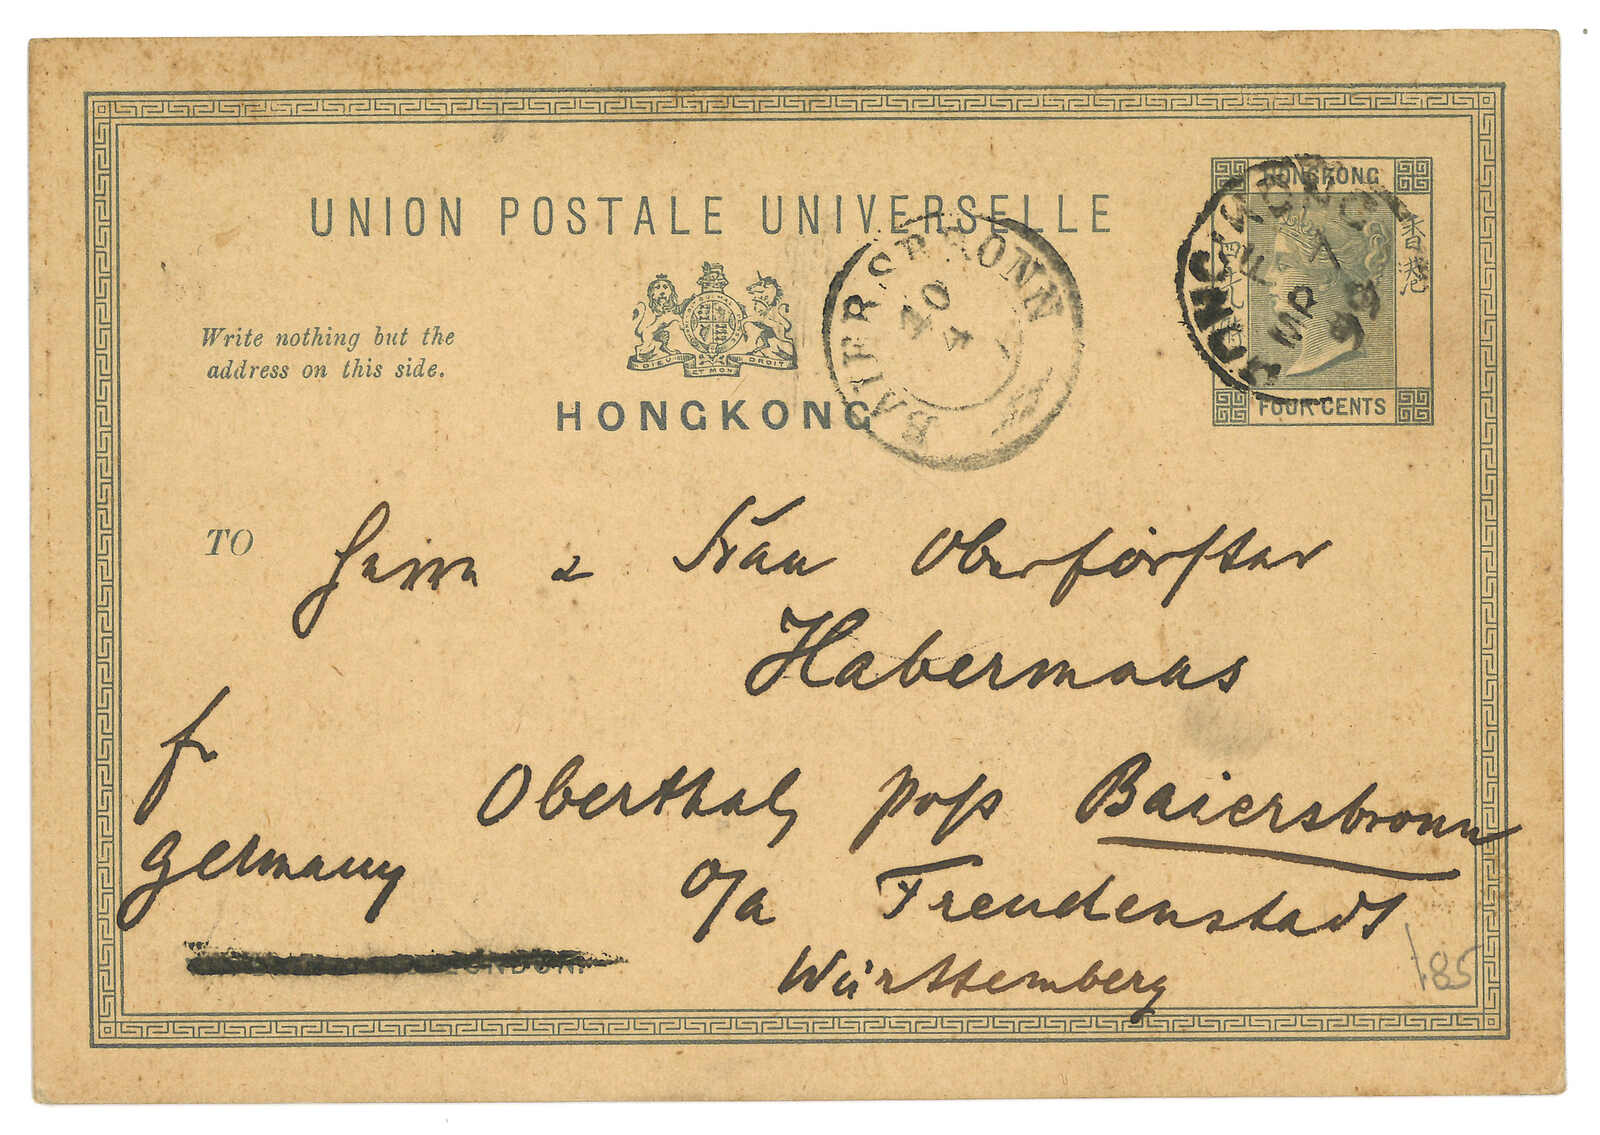 UNION POSTALE UNIVERSELLE
HONGKONG
香港
FOUR CENTS
BAIERSBRONN
10
4
Write nothing but the
address on this side.
DIEU ET MON DROIT
HONGKONG
TO
Herrn & Frau Oberförster
Habermaas
fr
Oberthal, post Baiersbronn
Germany
O/A Freudenstadt
Württemberg
LONDON.
185